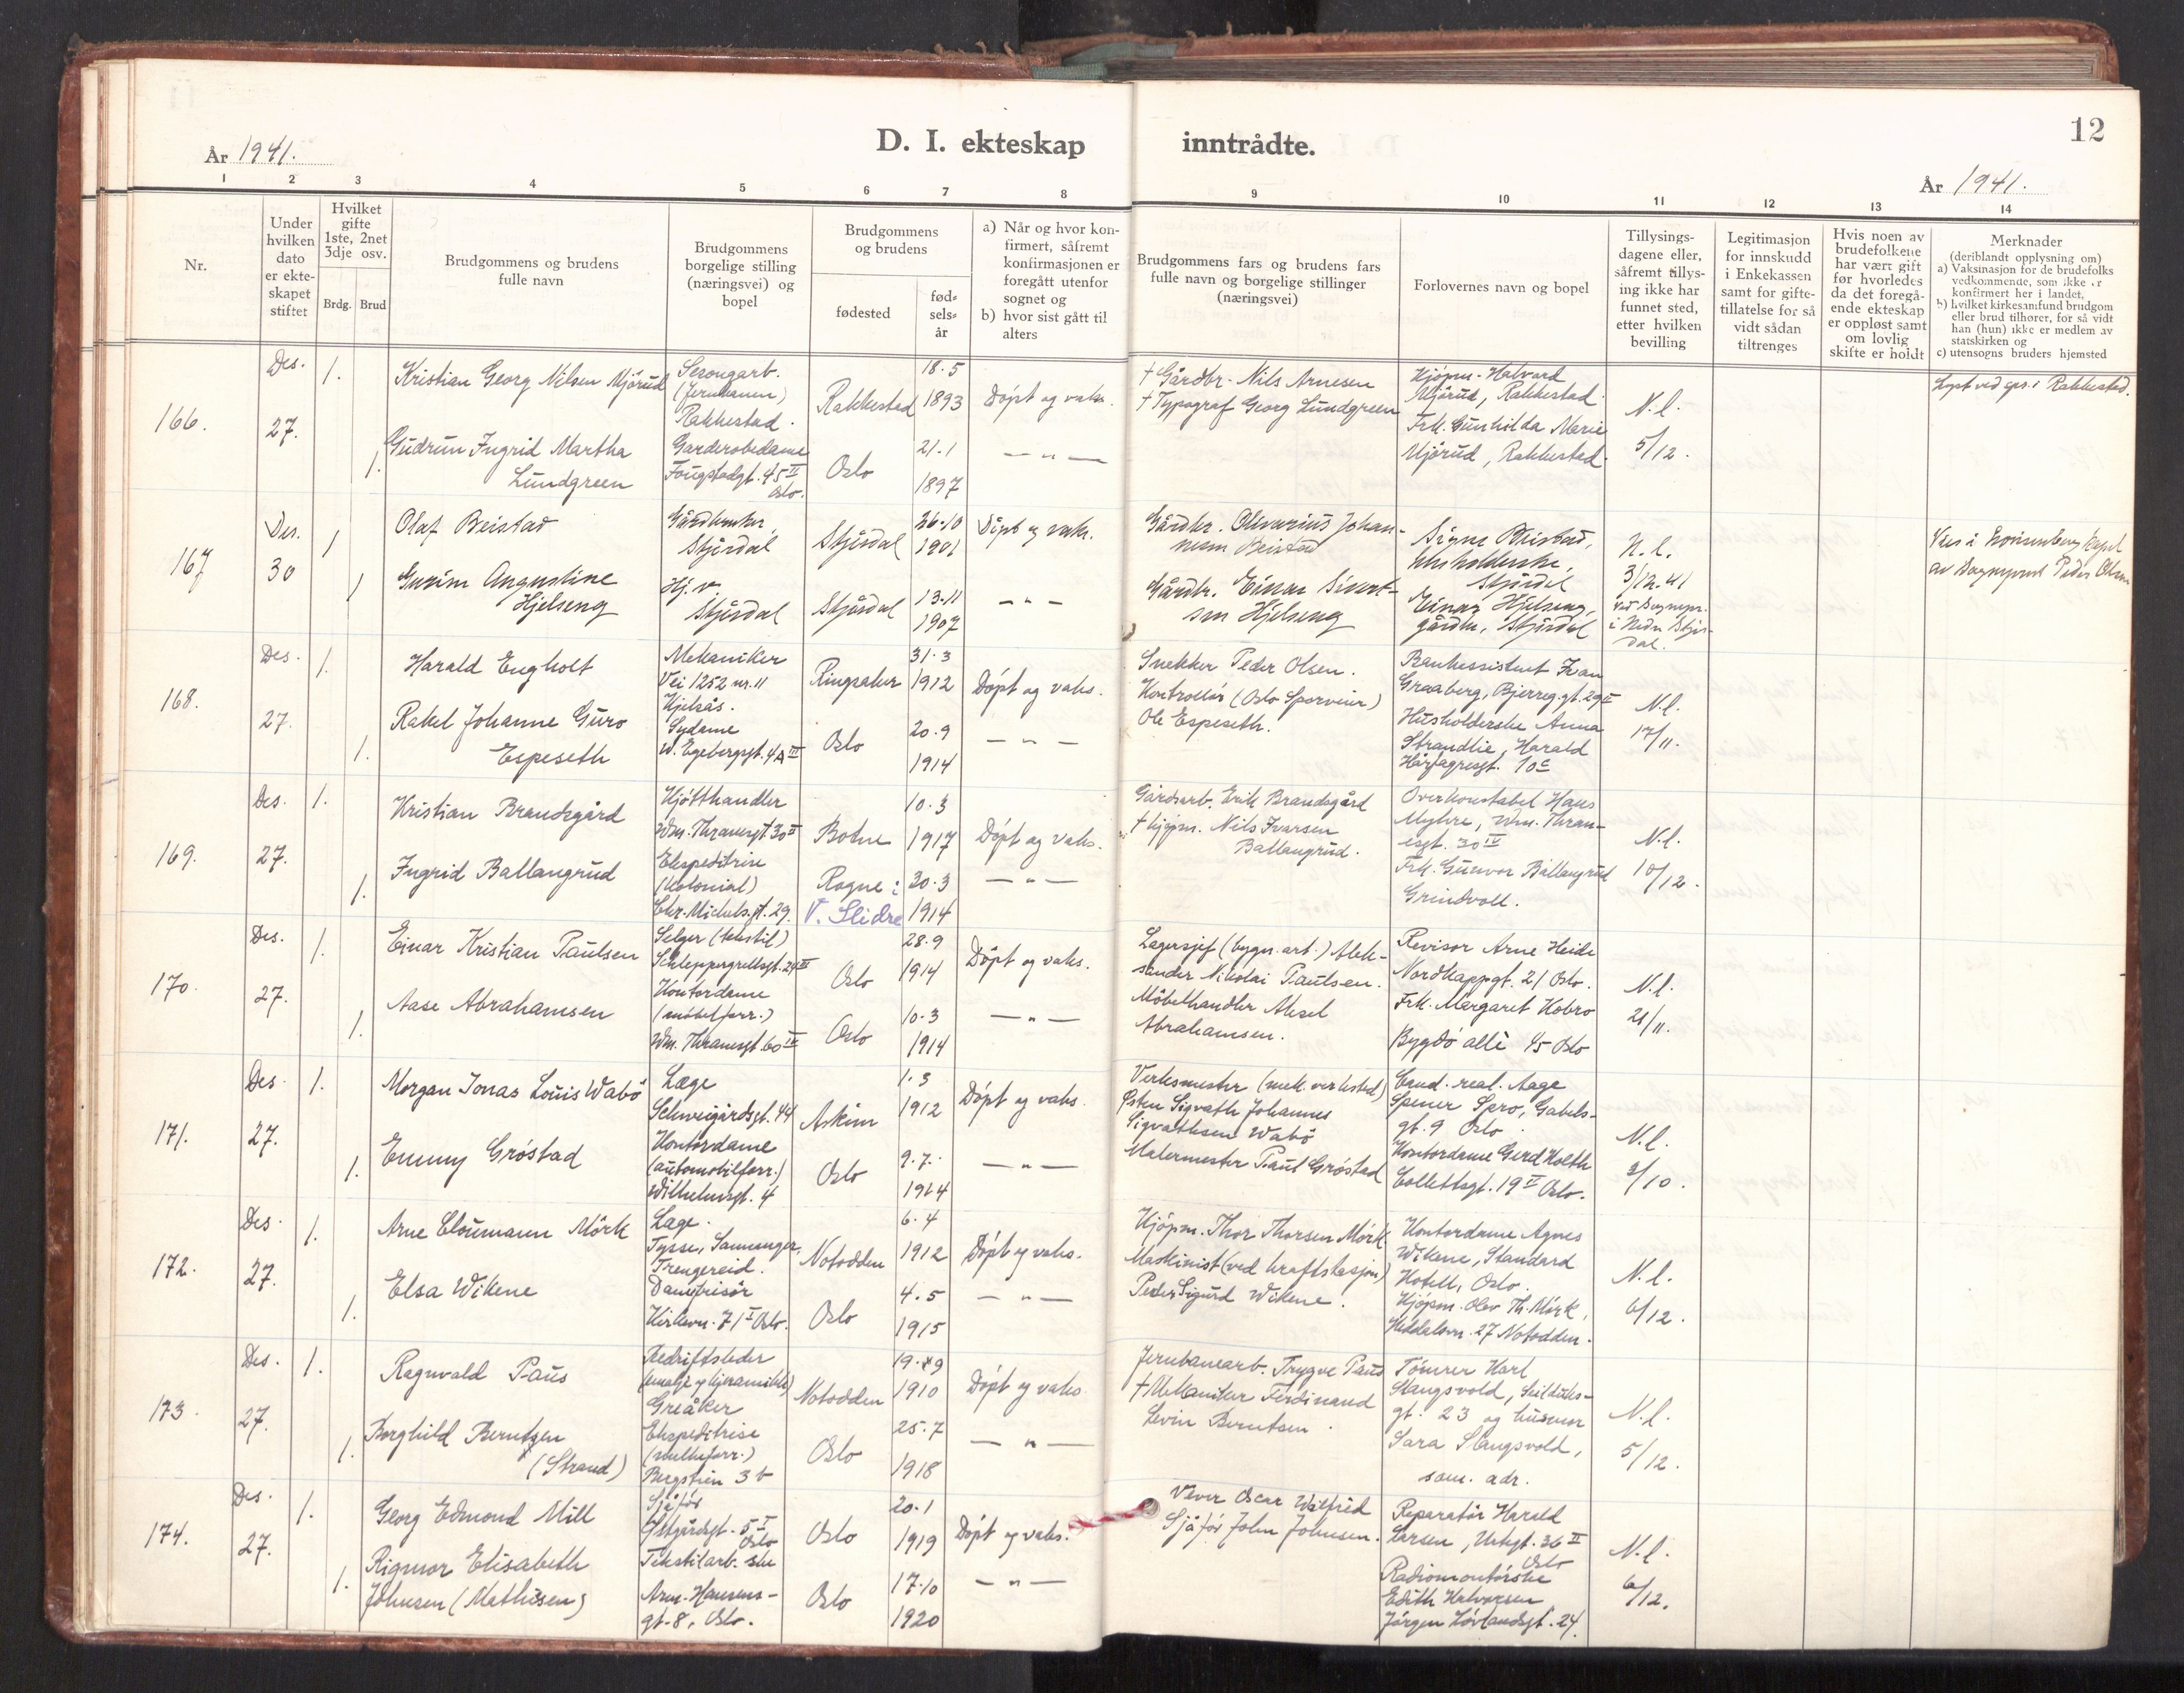 12
År 1941.
D. I. ekteskap inntrådte.
År 1941.
1 2 3 4 5 6 7 8 9 10 11 12 13 14
Nr.
Under hvilken dato er ekteskapet stiftet
Hvilket gifte 1ste, 2net 3dje osv.
Brdg. Brud
Brudgommens og brudens fulle navn
Brudgommens borgelige stilling (næringsvei) og bopel
Brudgommens og brudens
fødested
fød-sels-år
a) Når og hvor konfirmert, såfremt konfirmasjonen er foregått utenfor sognet og
b) hvor sist gått til alters
Brudgommens fars og brudens fars fulle navn og borgelige stillinger (næringsvei)
Forlovernes navn og bopel
Tillysingsdagene eller, såfremt tillysing ikke har funnet sted, etter hvilken bevilling
Legitimasjon for innskudd i Enkekassen samt for giftetillatelse for så vidt sådan tiltrenges
Hvis noen av brudefolkene har vært gift før hvorledes da det foregående ekteskap er oppløst samt om lovlig skifte er holdt
Merknader
(deriblandt opplysning om)
a) Vaksinasjon for de brudefolks vedkommende, som ikke er konfirmert her i landet,
b) hvilket kirkesamfund brudgom eller brud tilhører, for så vidt han (hun) ikke er medlem av statskirken og
c) utensogns bruders hjemsted
166.
Des. 27.
1.
Kristian Georg Nilsen Mjörud
(Jernbanen)
Rakkestad.
Rakkestad
18.5
1893
Döpt og vaks.
† Gårdbr. Nils Arnesen
† Typograf Georg Lundgreen
Kjöpm. Halvard
Mjörud, Rakkestad.
Frk. Gunhilda Marie
Mjörud, Rakkestad.
N.l.
5/12.
Lyst ved spr. i Rakkestad.
1.
Gudrun Ingrid Martha
Lundgreen
Garderobedame
Fougstadgt. 45 II
Oslo.
Oslo
21.1
1897
— " —
167
Des. 30
1
Olaf Beistad
Gårdbruker,
Stjördal
Stjördal
26-10
1901
Döpt og vaks.
Gårdbr. Oliverius Johan-
nesen Beistad
Signe Beistad,
husholderske,
Stjördal
N.l.
3/12-41
ved Sognepr.
i Nedre Stjör-
dal.
av Sogneprest Peder Olsen
1
Augustine
Hjelseng
Hj. v.
Stjørdal
Stjørdal
13-11
1907
— " —
Gårdbr. Einar Sivert-
sen Hjelseng
Einar Hjelseng,
gårdbr., Stjördal
168.
Des. 27.
1.
Harald Engholt
Mekaniker
Vei 1252 nr. 11
Kjelsås.
Ringsaker
31.3
1912
Döpt og vaks.
Snekker Peder Olsen.
Kontrollör (Oslo Sporveier)
Ole Espeseth.
Bankassistent Ivan
Graaberg, Bjerreg.gt. 29 II
Husholderske Anna
Strandlie, Harald
Hårfagresgt. 10 c
N.l.
17/11.
1.
Rakel Johanne Guro
Espeseth
Sydame
W. Egebergsgt. 4A III
Oslo
20.9
1914
— " —
169.
Des. 27.
1.
Kristian Brandsgård
Kjötthandler
Wm. Thranesgt 30 II
Botne
10.3
1917
Döpt og vaks.
Gårdsarb. Erik Brandsgård
† Kjöpm. Nils Ivarsen
Ballangrud.
Overkonstabel Hans
Myhre, Wm. Thran-
esgt. 30 IV
Frk. Gunvor Ballangrud
Grindvoll.
N.l.
10/12.
1.
Ingrid Ballangrud
Ekspeditrise
(Kolonial)
Chr. Michels.gt. 29.
Rogne i
V. Slidre
30.3
1914
— " —
170.
Des. 27.
1.
Einar Kristian Paulsen
Selger (tekstil)
Schleppegrellsgt. 24 III
Oslo
28.9
1914
Döpt og vaks.
Lagersjef (bygn. art.) Alek-
sander Nikolai Paulsen.
Möbelhandler Aksel
Abrahamsen.
Revisor Arne Heide
Nordkappgt. 21 Oslo.
Frk. Margaret Kobro
Bygdö allé 45 Oslo
N.l.
21/11.
1.
Aase Abrahamsen
Kontordame
(möbelforr.)
Wm. Thranesgt. 60 IV
Oslo
10.3
1914
— " —
171.
Des. 27.
1.
Morgan Jonas Louis Wabö
Læge
Schweigårdsgt. 44
Askim
1.3
1912
Döpt og vaks.
Verksmester (mek. verksted)
Østen Sigvath Johannes
Sigvathsen Wabö
Malermester Paul Gröstad
Cand. real. Aage
Spener Spro, Gabels-
gt. 9 Oslo.
Kontordame Gerd Holth
Collettsgt. 19 II Oslo.
N.l.
9/10.
1.
Emmy Gröstad
Kontordame
(automobilforr.)
Wilhelmsgt. 4
Oslo
9.7.
1914
— " —
172.
Des. 27.
1.
Arne Cloumann Mörk
Læge.
Tysse, Samnanger,
Trengereid.
Notodden
6.4
1912
Döpt og vaks.
Kjöpm. Thor Thorsen Mörk
Maskinist (ved kraftstasjon)
Peder Sigurd Wikene.
Kontordame Agnes
Wikene, Standard
Hotell, Oslo.
Kjöpm. Olav Th. Mörk,
Heddalsvn. 27 Notodden.
N.l.
6/12.
1.
Elsa Wikene
Damefrisör
Kirkevn. 71 I Oslo.
Oslo
4.5
1915
— " —
173.
Des. 27.
1.
Ragnvald Paus
Bedriftsleder
Greåker
Notodden
19.9
1910
Döpt og vaks
Jernbanearb. Trygve Paus
† Mekaniker Ferdinand
Levin Berntsen.
Tömrer Karl
Slangsvold, Seilduks-
gt. 23 og husmor
Sara Slangsvold,
sam. adr.
N.l.
5/12.
1.
Borghild Berntzen
(Strand)
Ekspeditrise
(melkeforr.)
Bergstien 3b
Oslo
25.7
1918
— " —
174.
Des. 27.
1.
Georg Edmond Mill
Sjåför
Oslo
Oslo
20.1
1919
Döpt og vaks.
Vever Oscar Wilfred
Sjåför John Johnsen.
Reparatör Harald
Larsen, Urtegt. 36 II
Oslo
Radiomontörske
Edith Halvorsen
Jörgen Lövlandsgt. 24.
N.l.
6/12.
1.
Rigmor Elisabeth
Johnsen (Mathisen)
Tekstilarb.ske
Arm. Hansens-
gt. 8, Oslo.
Oslo
17.10
1920
— " —